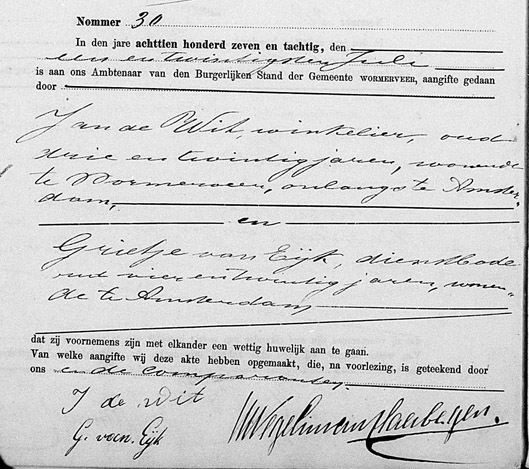 Nommer 30
In den jare achttien honderd zeven en tachtig, den
een en twintigsten Juli
is aan ons Ambtenaar van den Burgerlijken Stand der Gemeente WORMERVEER, aangifte gedaan
door
Jan de Wit, winkelier, oud
drie en twintig jaren, wonende
te Wormerveer, onlangs te Amster-
dam,
en
Grietje van Eijk, dienstbode
oud vier en twintig jaren, wonen-
de te Amsterdam
dat zij voornemens zijn met elkander een wettig huwelijk aan te gaan.
Van welke aangifte wij deze akte hebben opgemaakt, die, na voorlezing, is geteekend door
ons en de comparanten.
J de Wit
G. van Eijk